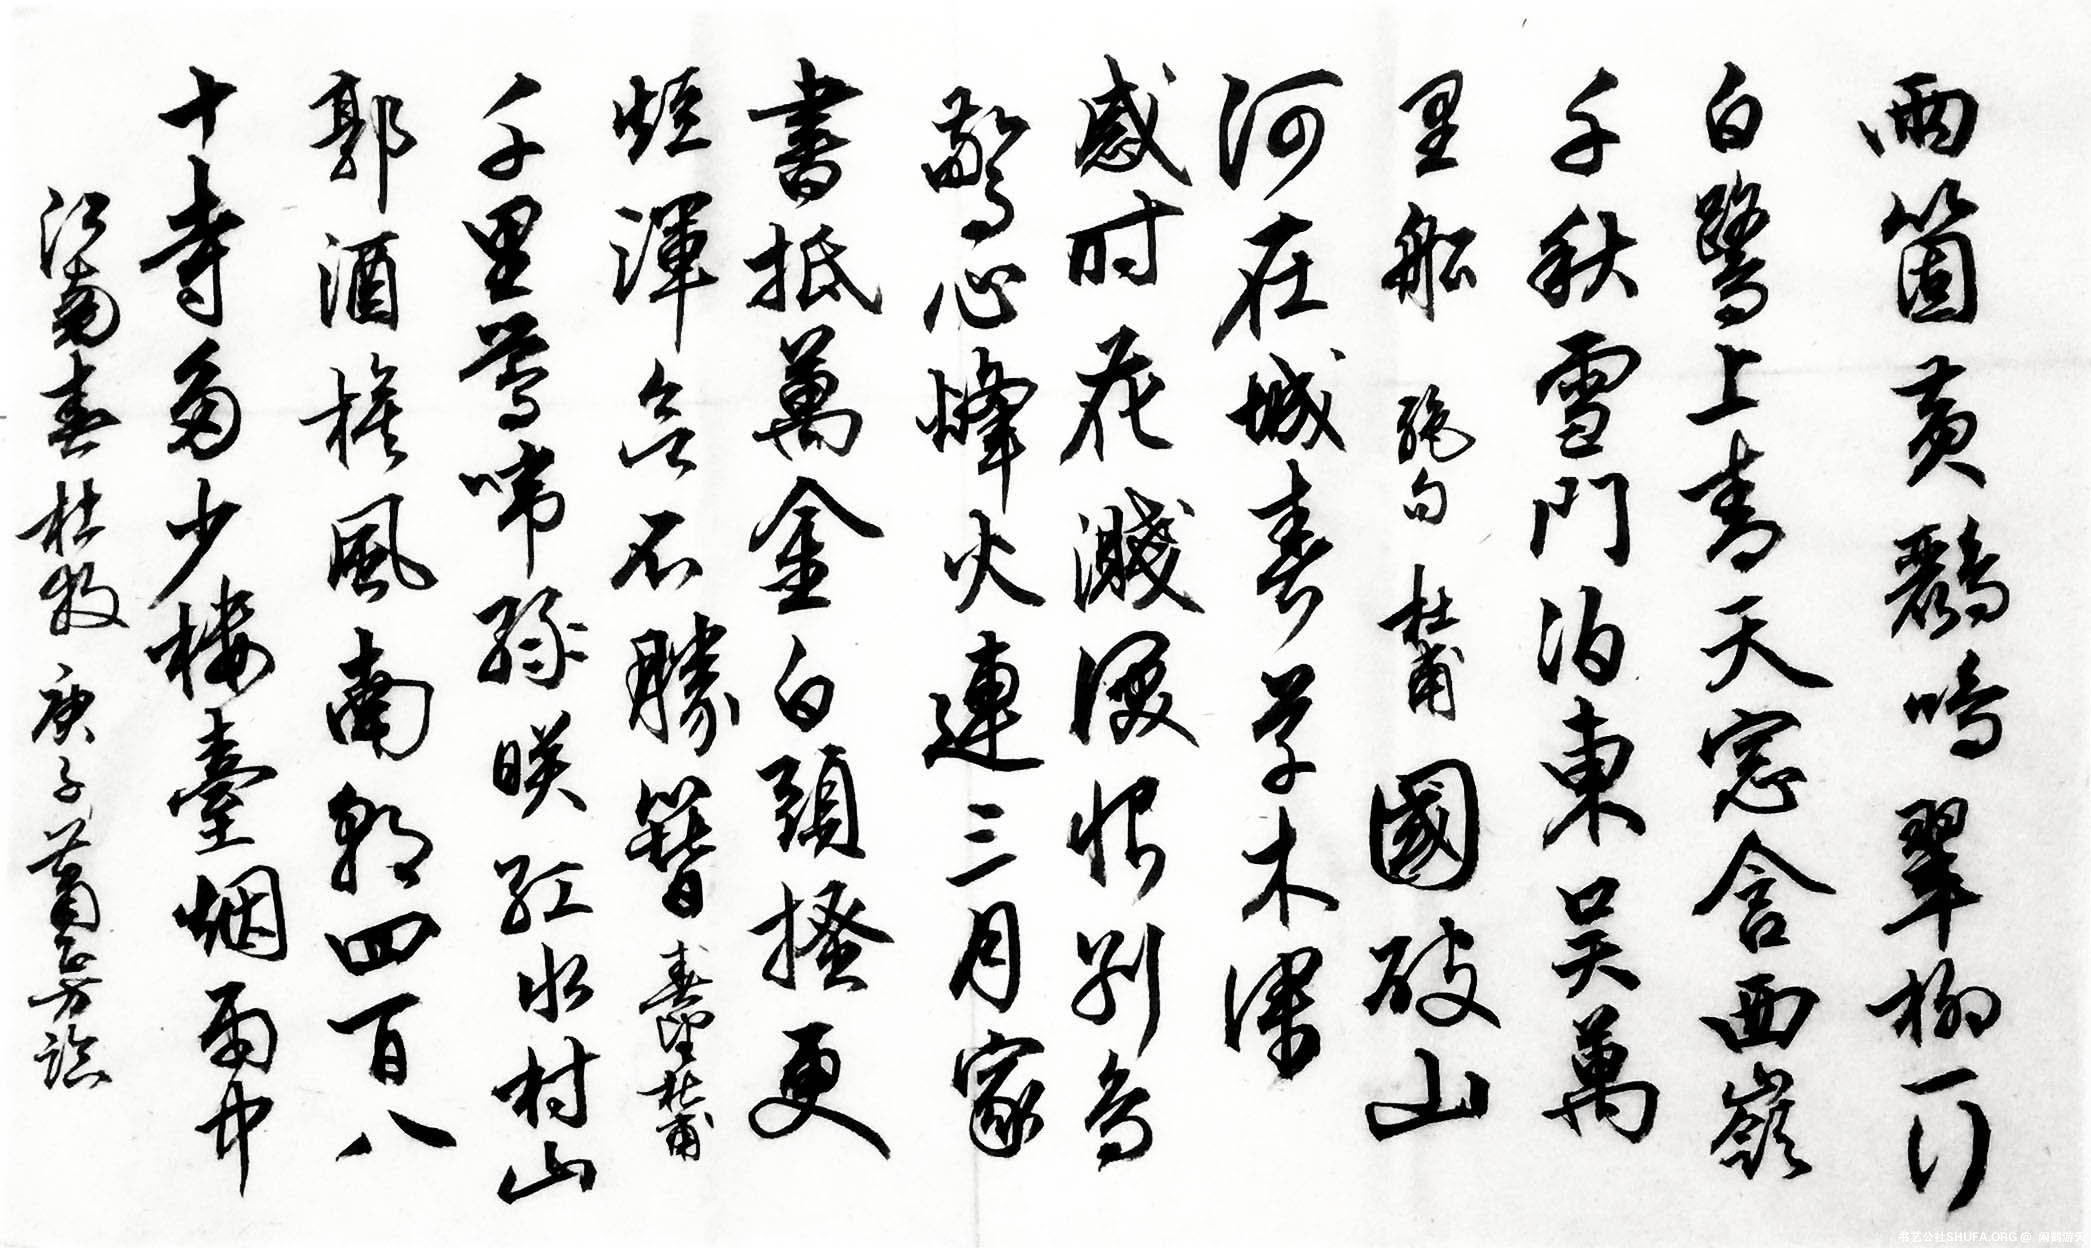 兩箇黃鸝鳴翠柳一行
白鷺上青天窓含西嶺
千秋雪門泊東吳萬
里船 絕句 杜甫 國破山
河在城春草木深
感时花濺淚恨别鸟
驚心烽火連三月家
書抵萬金白頭搔更
短渾欲不勝簪 春望杜甫
千里莺啼綠映紅水村山
郭酒旗風南朝四百八
十寺多少樓臺烟雨中
江南春 杜牧 庚子
书艺公社SHUFA.ORG @ 闲鹤游天